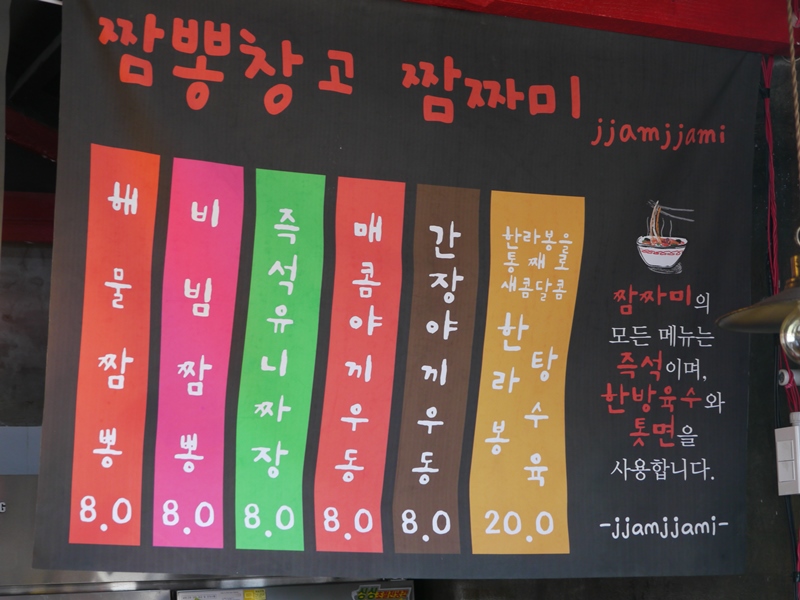 짬뽕창고 짬짜미
jjamjjami
해물짬뽕
8.0
비빔짬뽕
8.0
즉석유니짜장
8.0
매콤야끼우동
8.0
간장야끼우동
8.0
한라봉을
통째로
새콤달콤
한라봉
탕수육
20.0
짬짜미의
모든 메뉴는
즉석이며,
한방육수와
톳면을
사용합니다.
-jjamjjami-